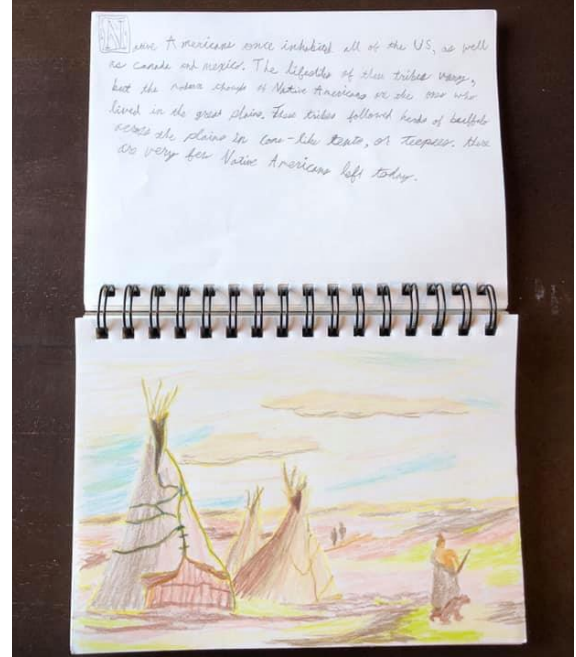 Native Americans once inhibied all of the US, as well
as canada and mexico. The lifestiles of these tribes vary,
but the most of Native Americans are the ones who
lived in the great plains. These tribes followed herds of buffalo
across the plains in cone-like tents, or Teepees. there
are very few Native Americans left today.